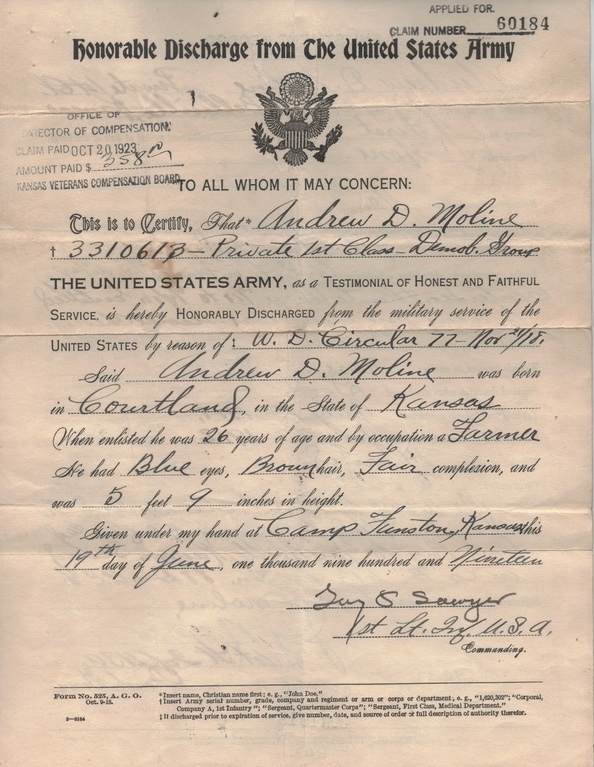 APPLIED FOR.
CLAIM NUMBER 60184
Honorable Discharge from The United States Army
OFFICE OF
DIRECTOR OF COMPENSATION
CLAIM PAID OCT 20 1923
AMOUNT PAID $ 358
KANSAS VETERANS COMPENSATION BOARD
TO ALL WHOM IT MAY CONCERN:
This is to Certify, That* Andrew D. Moline
† 3310613 – Private 1st Class – Demob. Group
THE UNITED STATES ARMY, as a TESTIMONIAL OF HONEST AND FAITHFUL
SERVICE, is hereby HONORABLY DISCHARGED from the military service of the
UNITED STATES by reason of ‡ W. D. Circular 77 – Nov 21/18.
Said Andrew D. Moline was born
in Courtland, in the State of Kansas
When enlisted he was 26 years of age and by occupation a Farmer
He had Blue eyes, Brown hair, Fair complexion, and
was 5 feet 9 inches in height.
Given under my hand at Camp Funston, Kansas this
19th day of June, one thousand nine hundred and Nineteen
Guy Sawyer
1st Lt. Inf. U.S.A.
Commanding.
Form No. 525, A. G. O.
Oct. 9-18.
3—6164
*Insert name, Christian name first; e. g., "John Doe."
†Insert Army serial number, grade, company and regiment or arm or corps or department; e. g., "1,620,302"; "Corporal,
Company A, 1st Infantry"; "Sergeant, Quartermaster Corps"; "Sergeant, First Class, Medical Department."
‡If discharged prior to expiration of service, give number, date, and source of order or full description of authority therefor.